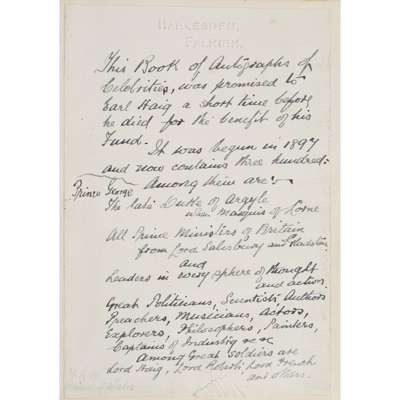 HARLESDEN,
FALKIRK.
This Book of Autographs of
Celebrities, was promised to
Earl Haig a short time before
he died for the benefit of his
Fund.
It was begun in 1897
and now contains three hundred:
Among them are:
Prince George
The late Duke of Argyle
when Marquis of Lorne
All Prime Ministers of Britain
from Lord Salisbury and Gladstone
and
Leaders in every sphere of thought
and action.
Great Politicians, Scientists, Authors
Preachers, Musicians, Actors,
Explorers, Philosophers, Painters,
Captains of Industry
Among Great Soldiers are
Lord Haig, Lord Roberts, Lord French
and others.